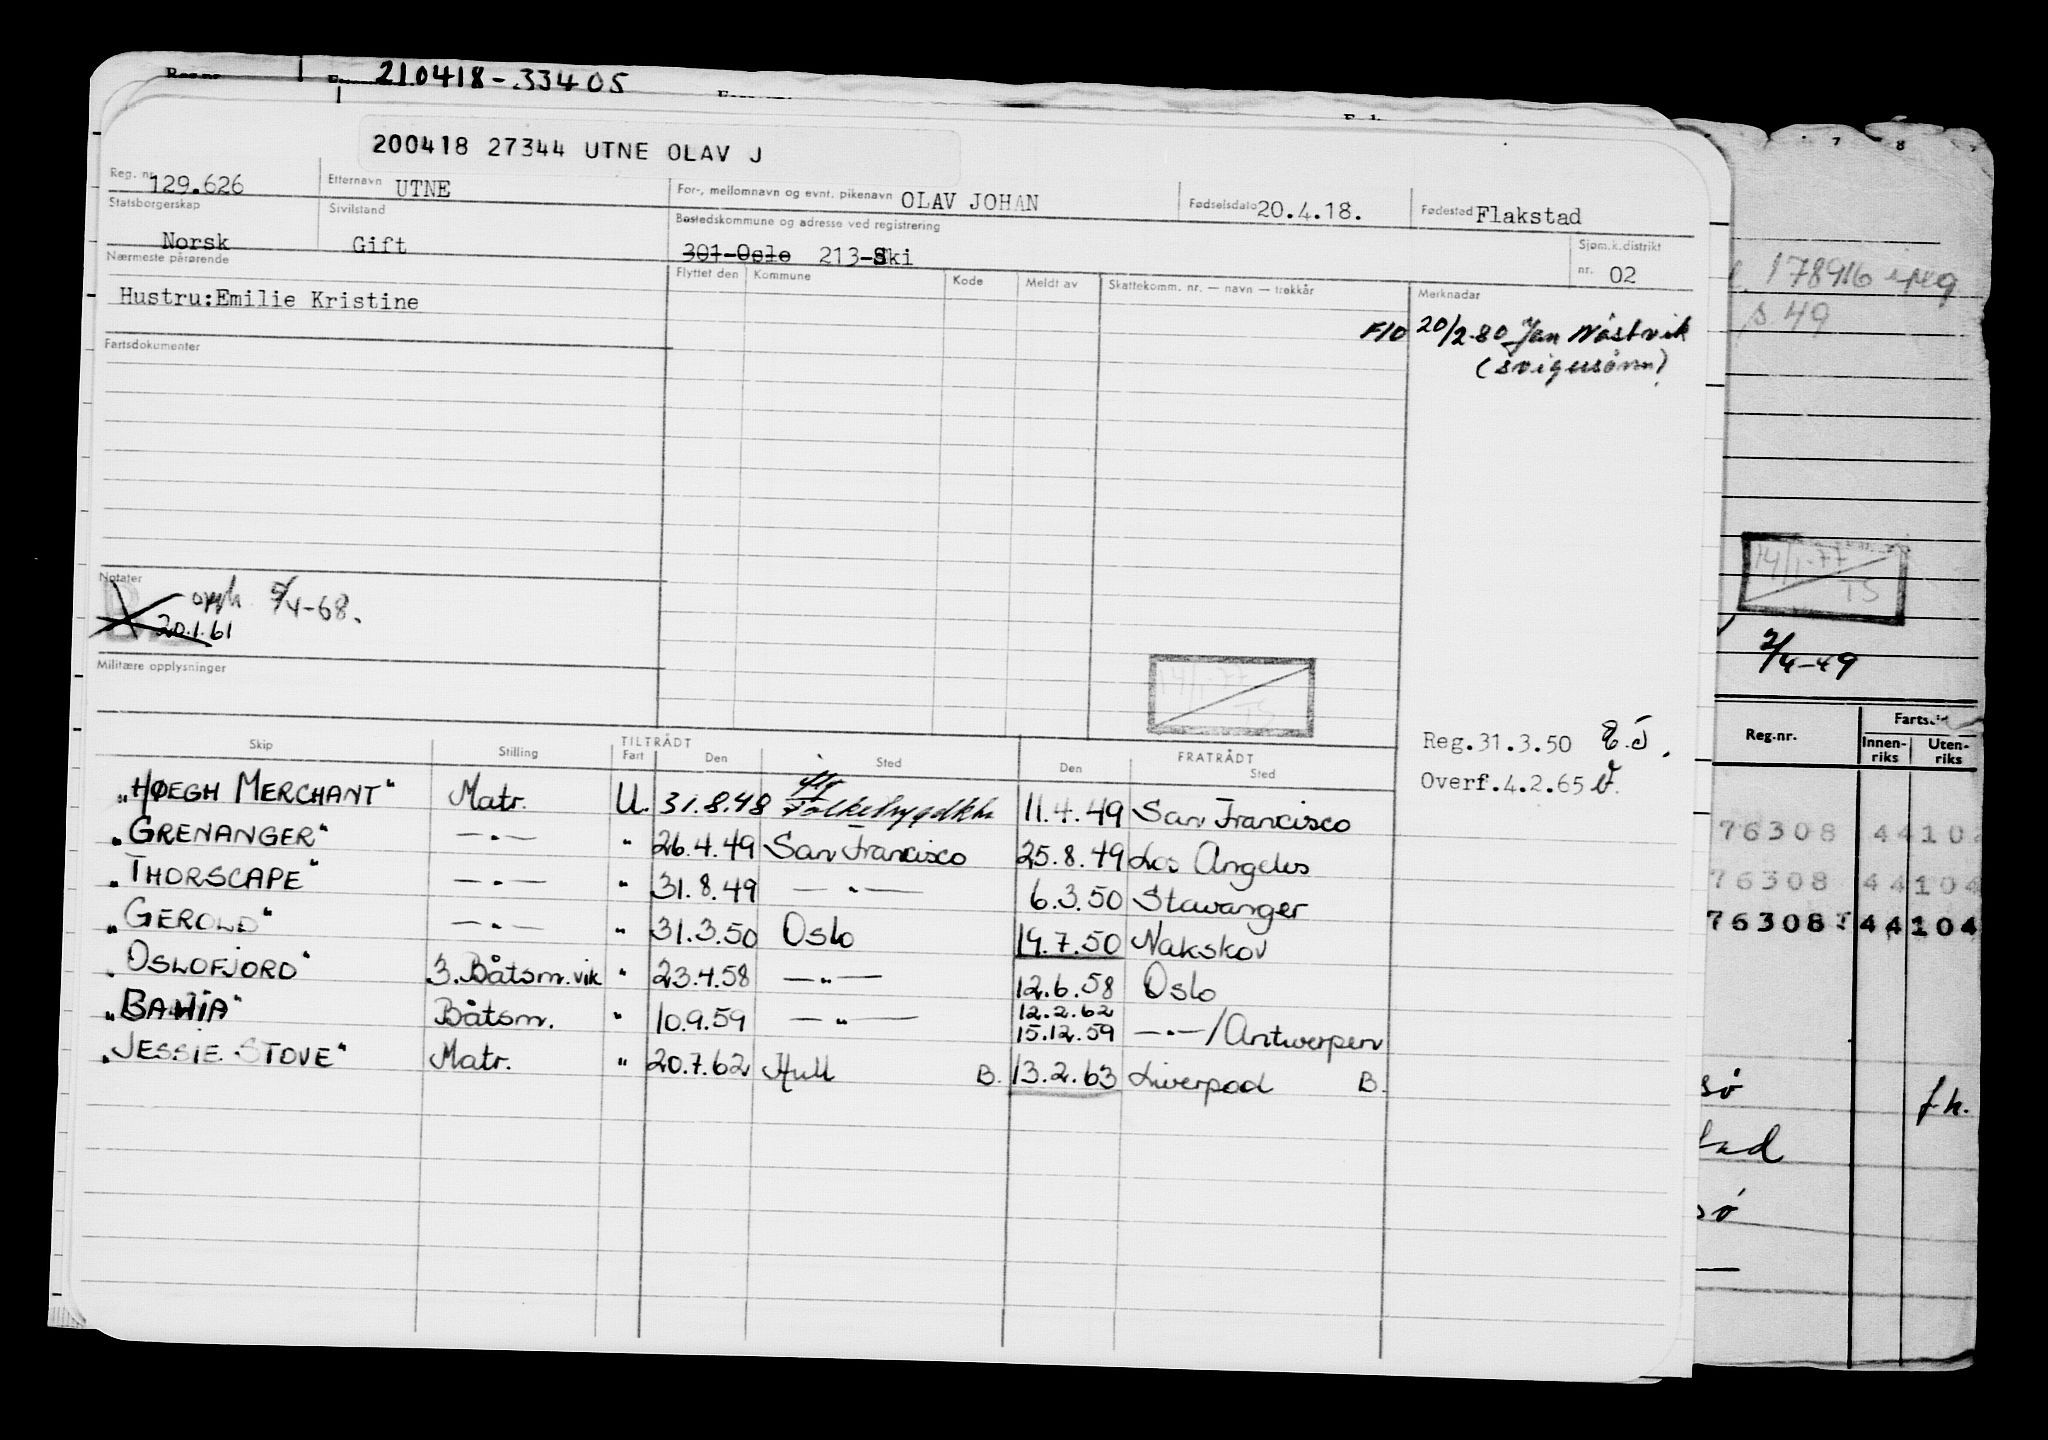 210418-33405
200418 27344 UTNE OLAV J
Reg. nr. 129.626 Etternavn UTNE For-, mellomnavn og evnt. pikenavn OLAV JOHAN Fødselsdato 20.4.18. Fødested Flakstad
Statsborgerskap Norsk Sivilstand Gift Bostedskommune og adresse ved registrering 301-Oslo 213-Ski Sjøm.k.distrikt nr. 02
Nærmeste pårørende Flyttet den Kommune Kode Meldt av Skattekomm. nr. — navn — trekkår Merknadar
Hustru:Emilie Kristine
F/O 20/2.80 Jan Nåstvik
(svigersønn)
Fartsdokumenter
Notater
opph. 5/4-68.
20.1.61
Militære opplysninger
14/1-77
TS
Reg.31.3.50
Overf.4.2.65
TILTRÅDT FRATRÅDT
Skip Stilling Fart Den Sted Den Sted
"HØEGH MERCHANT" Matr. U. 31.8.48 11.4.49 San Francisco
"GRENANGER" —"— " 26.4.49 San Francisco 25.8.49 Los Angeles
"THORSCAPE" —"— " 31.8.49 —"— 6.3.50 Stavanger
"GEROLD" —"— " 31.3.50 Oslo 19.7.50 Nakskov
"OSLOFJORD" 3. Båtsm.vik " 23.4.58 —"— 12.6.58 Oslo
"BAHIA" Båtsm. " 10.9.59 —"— 12.2.62
15.12.59 —"—/Antwerpen
"JESSIE STOVE" Matr. " 20.7.62 Hull B. 13.2.63 Liverpool B.
7 8
178916 i reg
s 49
14/1-77
TS
2/4-49
Reg.nr. Innen-riks Uten-riks
76308 44102
76308 44104
76308 44104
sø f.h.
tad
sø